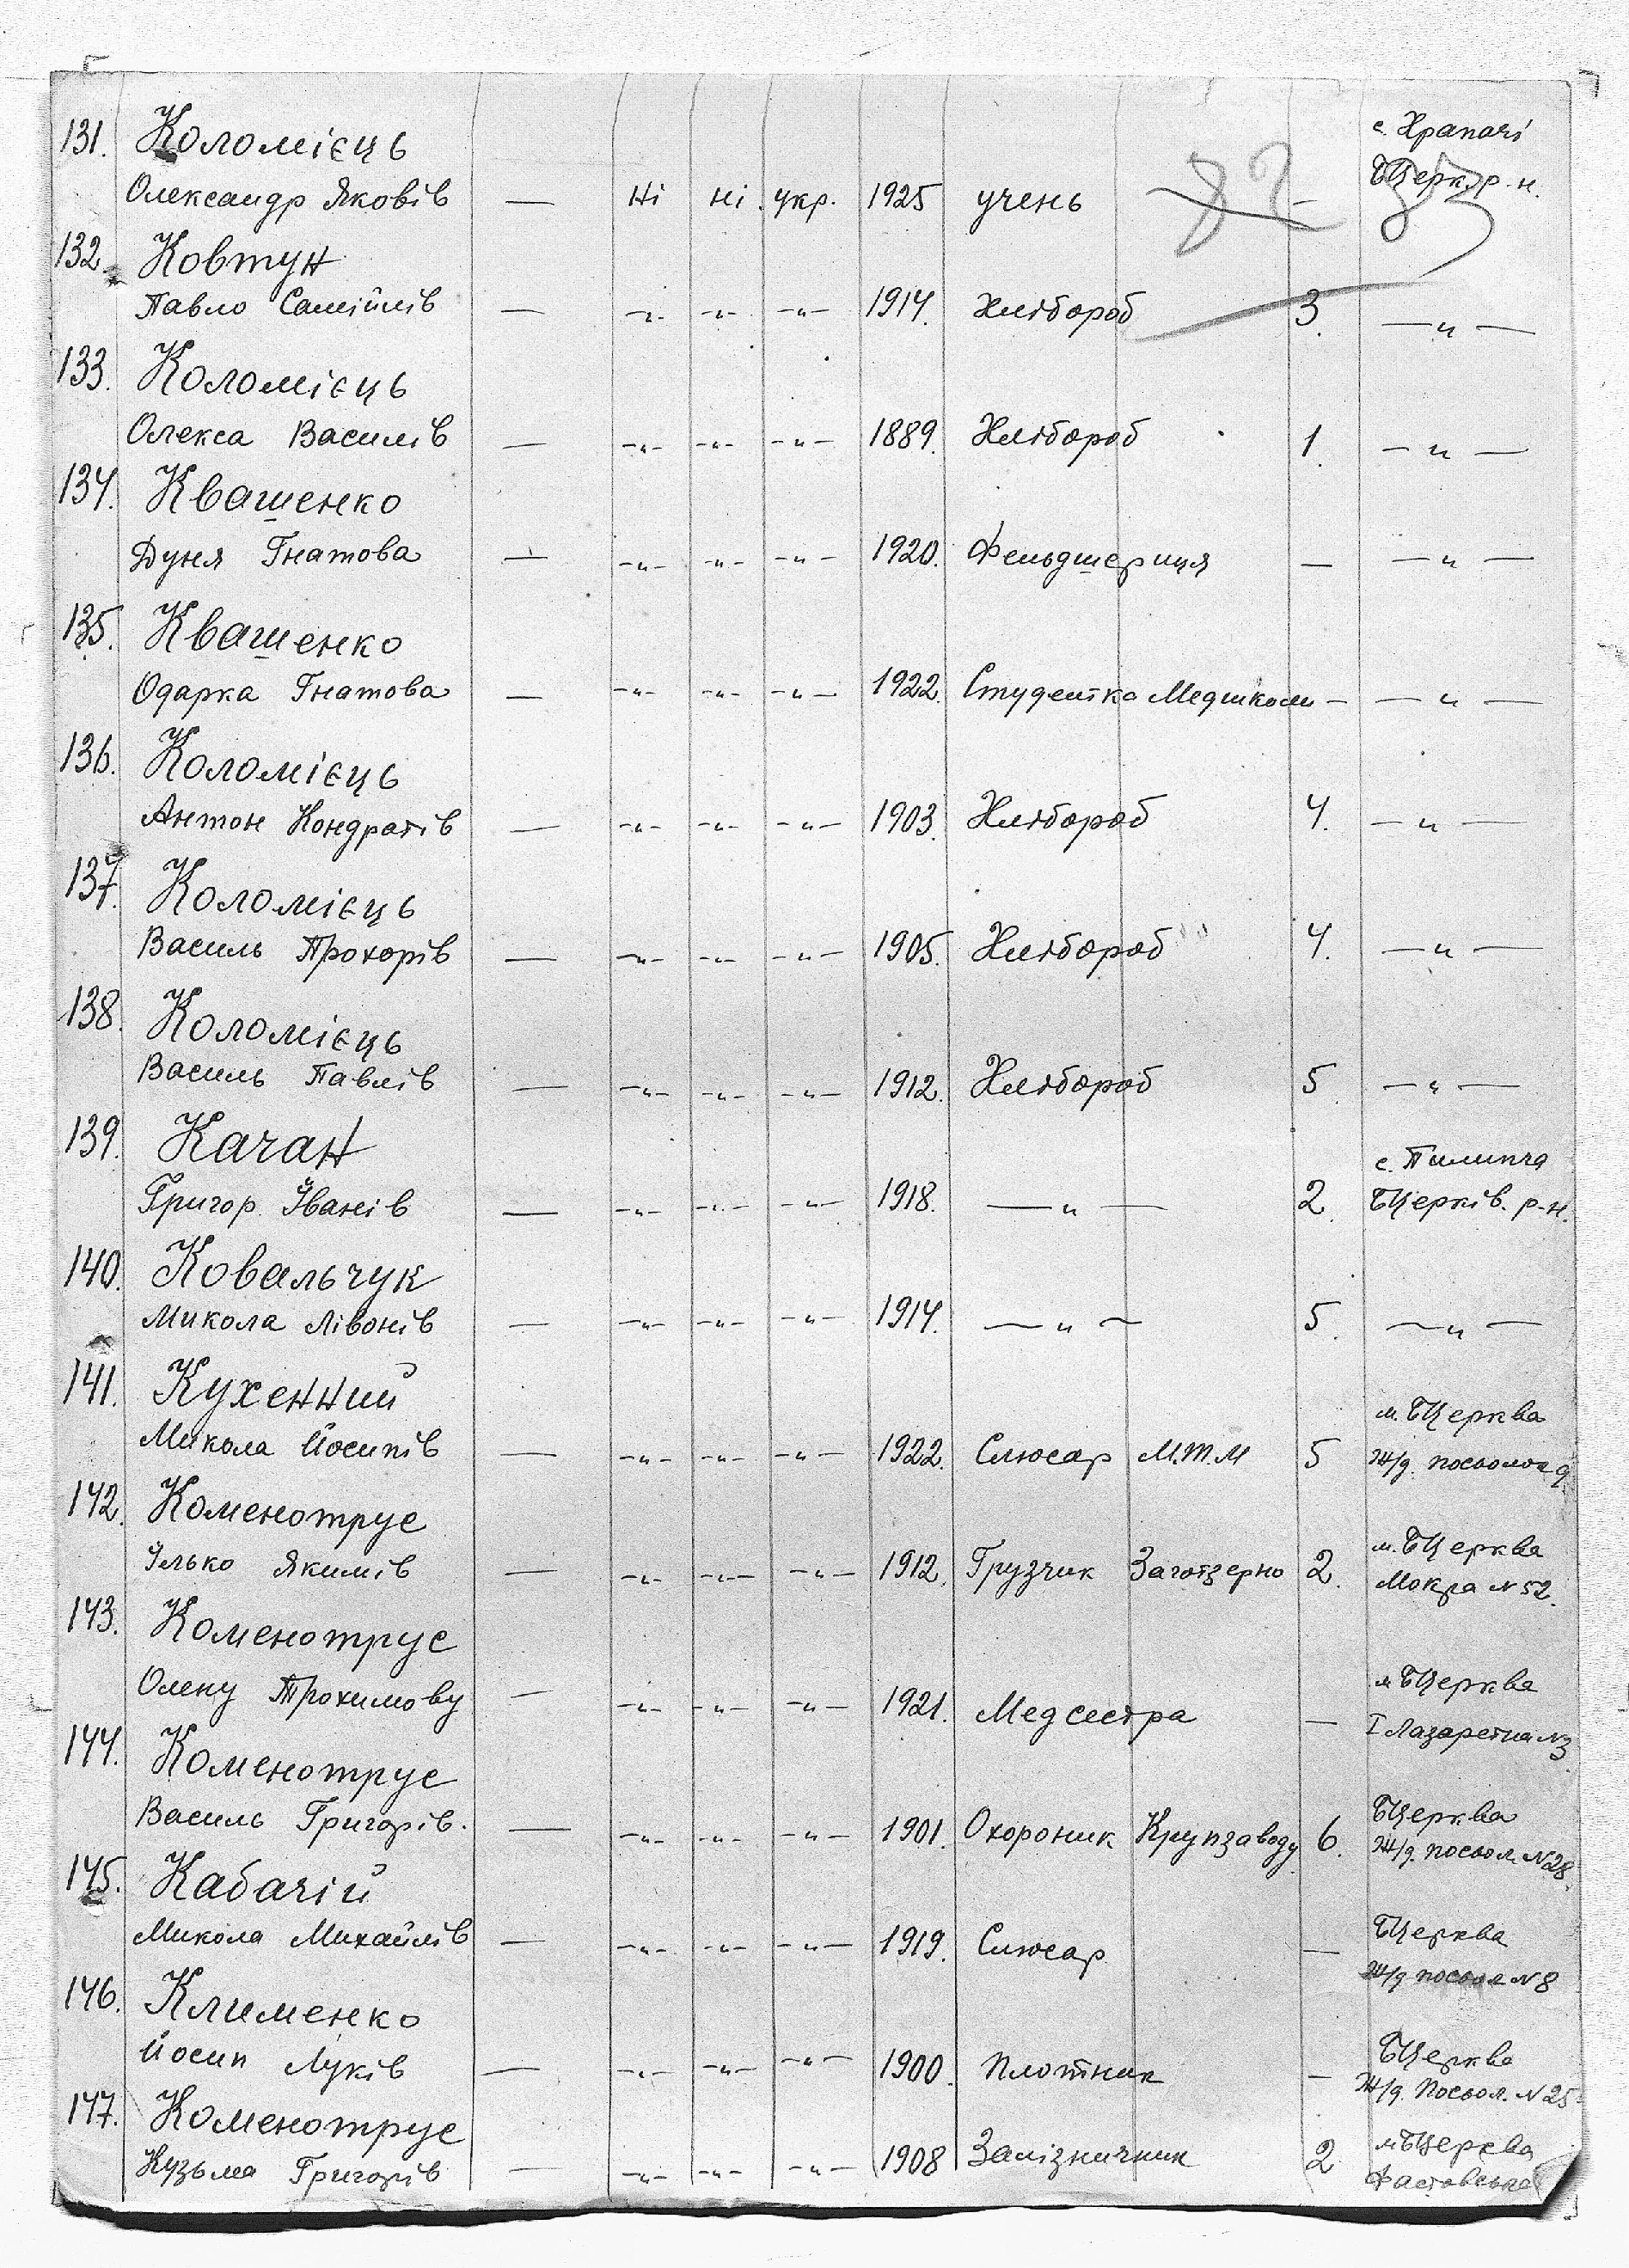 с. Храпачі
131. Коломієць БЦерк. р-н.
Олександр Яковів — Ні ні укр. 1925 учень —
82 83
132. Ковтун
Павло Самійлів — -"- -"- -"- 1914. Хлібороб 3. —"—
133. Коломієць
Олекса Василів — -"- -"- -"- 1889. Хлібороб 1. —"—
134. Квашенко
Дуня Гнатова — -"- -"- -"- 1920. Фельдшериця — —"—
135. Квашенко
Одарка Гнатова — -"- -"- -"- 1922. Студентка Медшколи — —"—
136. Коломієць
Антон Кондратів — -"- -"- -"- 1903. Хлібороб 4. —"—
137. Коломієць
Василь Прохорів — -"- -"- -"- 1905. Хлібороб 4. —"—
138. Коломієць
Василь Павлів — -"- -"- -"- 1912. Хлібороб 5 —"—
139. Качан с. Пилипча
Григор Іванів — -"- -"- -"- 1918. —"— 2. БЦерків. р-н.
140. Ковальчук
Микола Лівонів — -"- -"- -"- 1914. —"— 5. —"—
141. Кухенний м. БЦерква
Микола Йосипів — -"- -"- -"- 1922. Слюсар М.Т.М 5 Ж/д. посьолок 9
142. Коменотрус м. БЦерква
Ілько Якимів — -"- -"- -"- 1912. Грузчик Заготзерно 2. Мокра N 52.
143. Коменотрус м БЦерква
Олену Трохимову — -"- -"- -"- 1921. Медсестра — І Лазаретна N3
144. Коменотрус БЦерква
Василь Григорів. — -"- -"- -"- 1901. Охороник Крупзаводу 6. Ж/д. посьол. N 28.
145. Кабачій БЦерква
Микола Михайлів — -"- -"- -"- 1919. Слюсар — Ж/д посьол N 8
146. Клименко БЦерква
Йосип Луків — -"- -"- -"- 1900. Плотник — Ж/д. Посьол. N 25
147. Коменотрус м БЦерква
Кузьма Григорів — -"- -"- -"- 1908 Залізничник 2 Фастовська